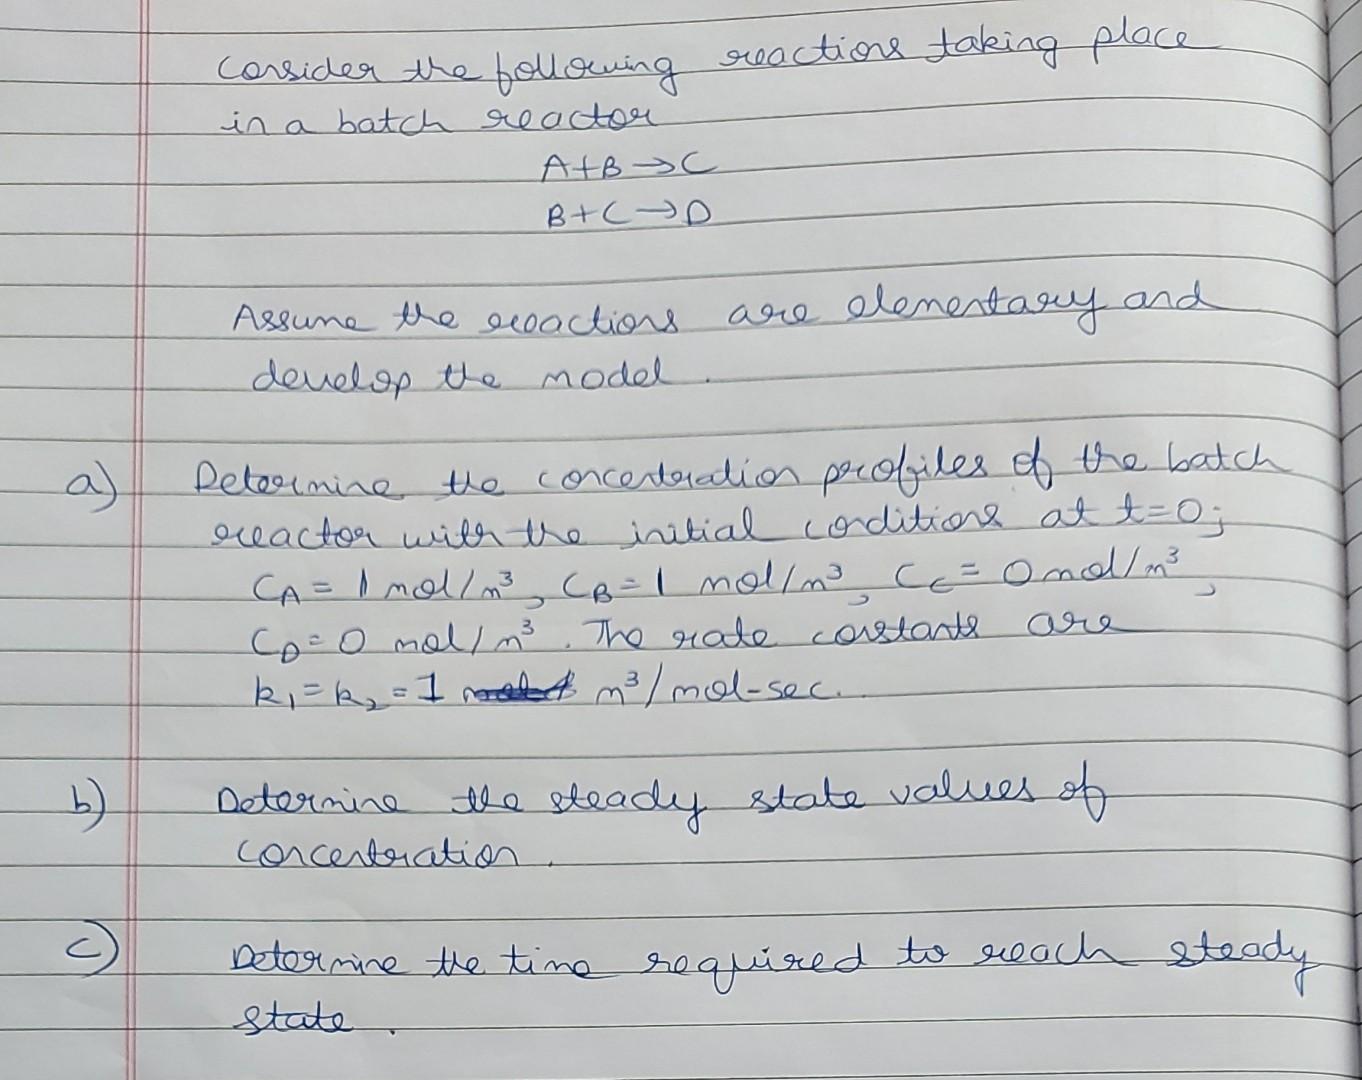 Consider the following reactions taking place
in a batch reactor
A+B→C
B+C→D
Assume the reactions are elementary and
develop the model.
a) Determine the concentration profiles of the batch
reactor with the initial conditions at t=0;
C_A = 1 mol/m³, C_B = 1 mol/m³, C_C = 0 mol/m³,
C_D = 0 mol/m³. The rate constants are
k₁ = k₂ = 1 m³/mol-sec.
b) Determine the steady state values of
concentration.
c) Determine the time required to reach steady
state.